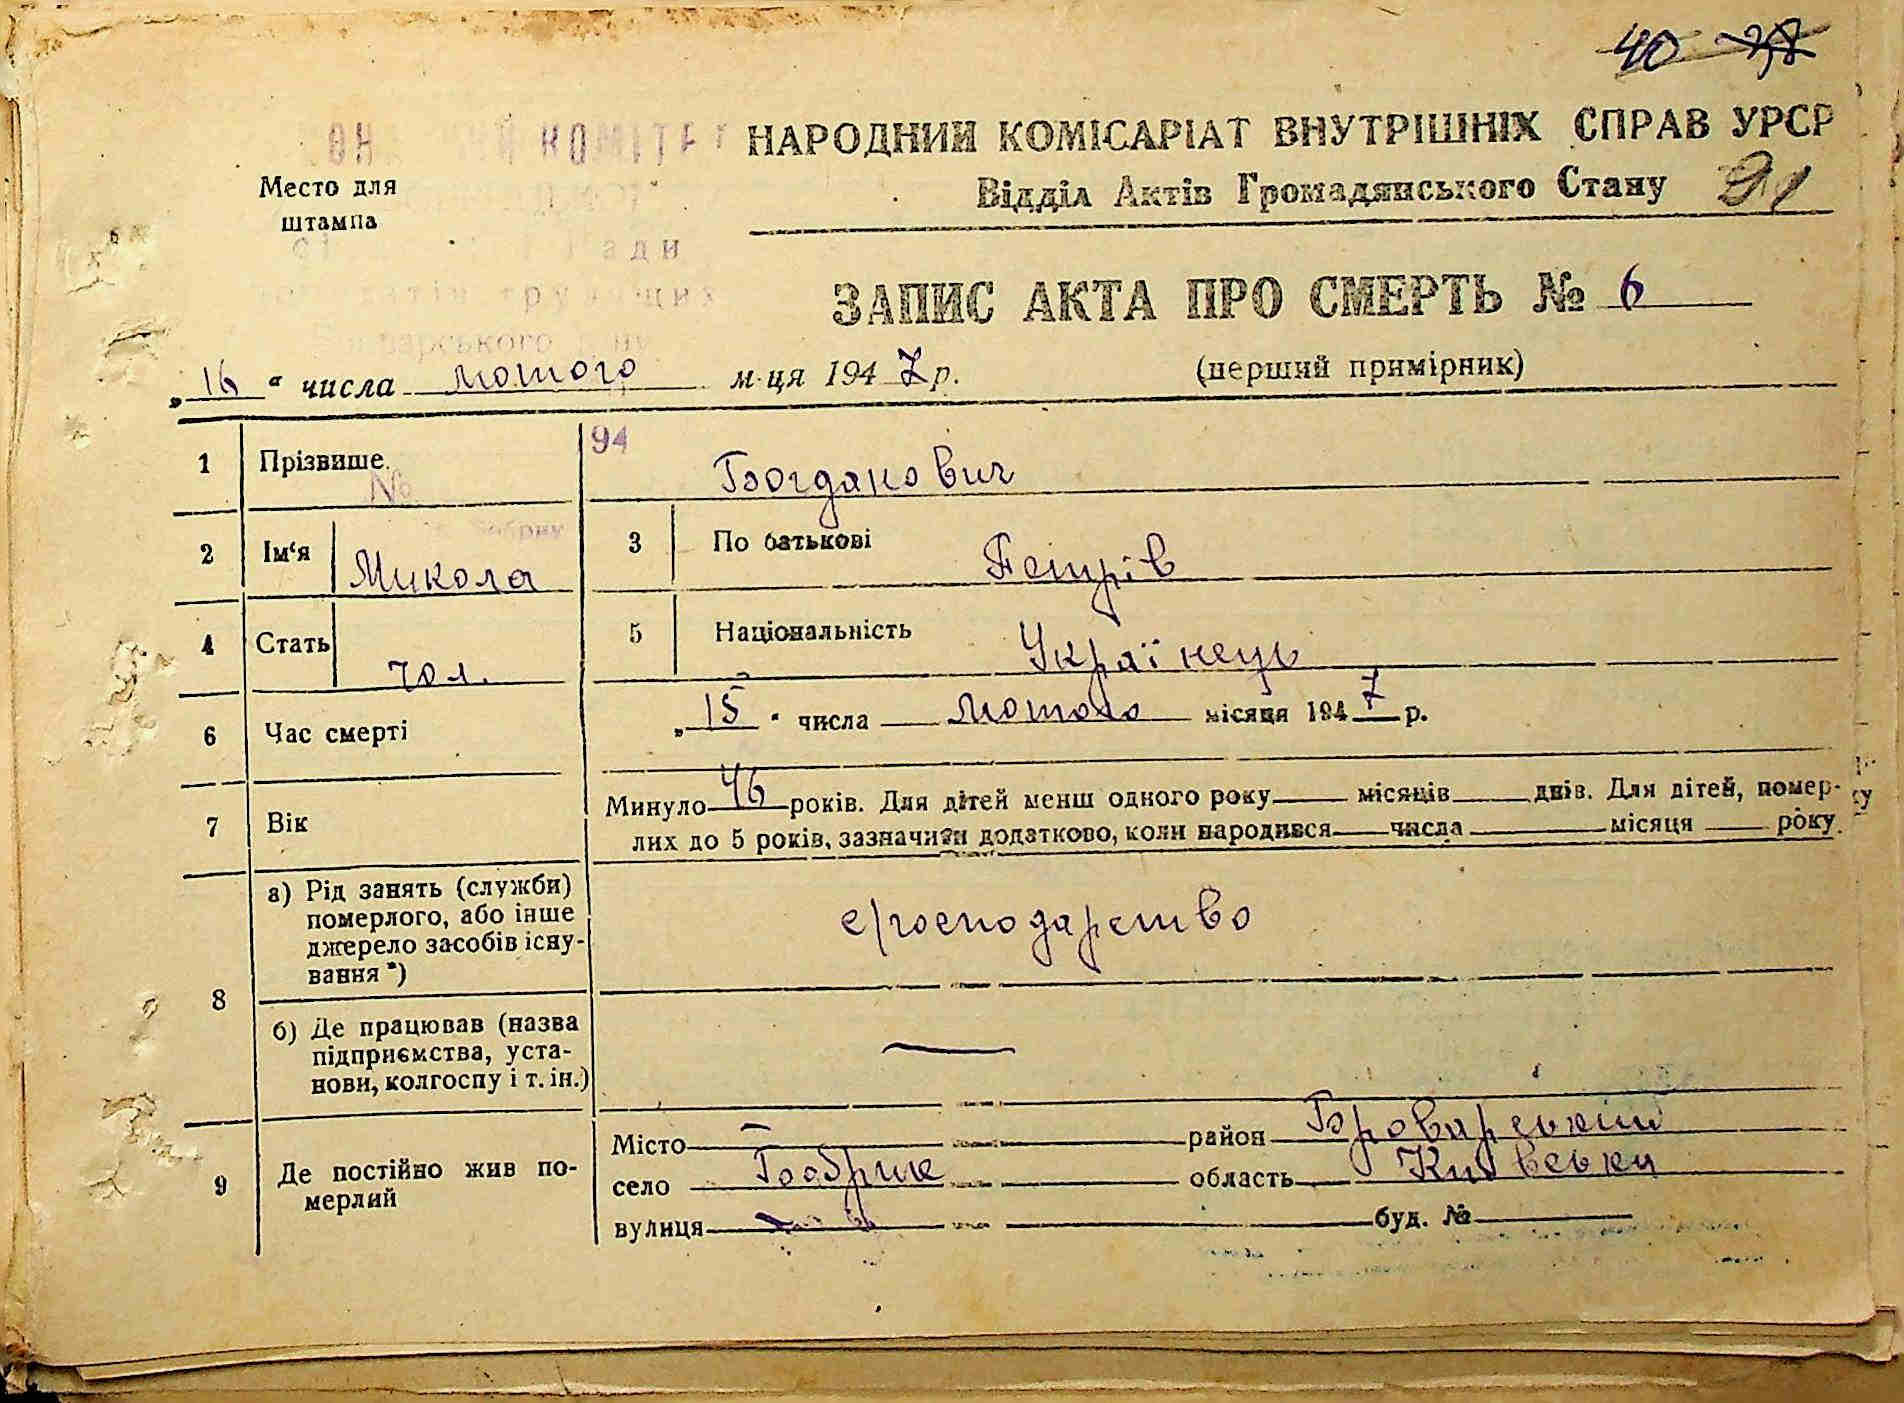 40 38
НАРОДНИЙ КОМІСАРІАТ ВНУТРІШНІХ СПРАВ УРСР
Место для штампа
Відділ Актів Громадянського Стану 91
ЗАПИС АКТА ПРО СМЕРТЬ № 6
„16“ числа лютого м-ця 1947 р. (перший примірник)
94
1 Прізвише Богданович
№
2 Ім‘я Микола 3 По батькові Петрів
4 Стать чол. 5 Національність Українець
6 Час смерті „15“ числа лютого місяця 1947 р.
7 Вік Минуло 46 років. Для дітей менш одного року місяців днів. Для дітей, помер-
лих до 5 років, зазначити додатково, коли народився числа місяця року.
8 а) Рід занять (служби)
померлого, або інше
джерело засобів існу-
вання*)
с/господарство
б) Де працював (назва
підприємства, уста-
нови, колгоспу і т. ін.)
—
9 Де постійно жив по-
мерлий
Місто — район Броварський
село Бобрик область Київська
вулиця буд. №